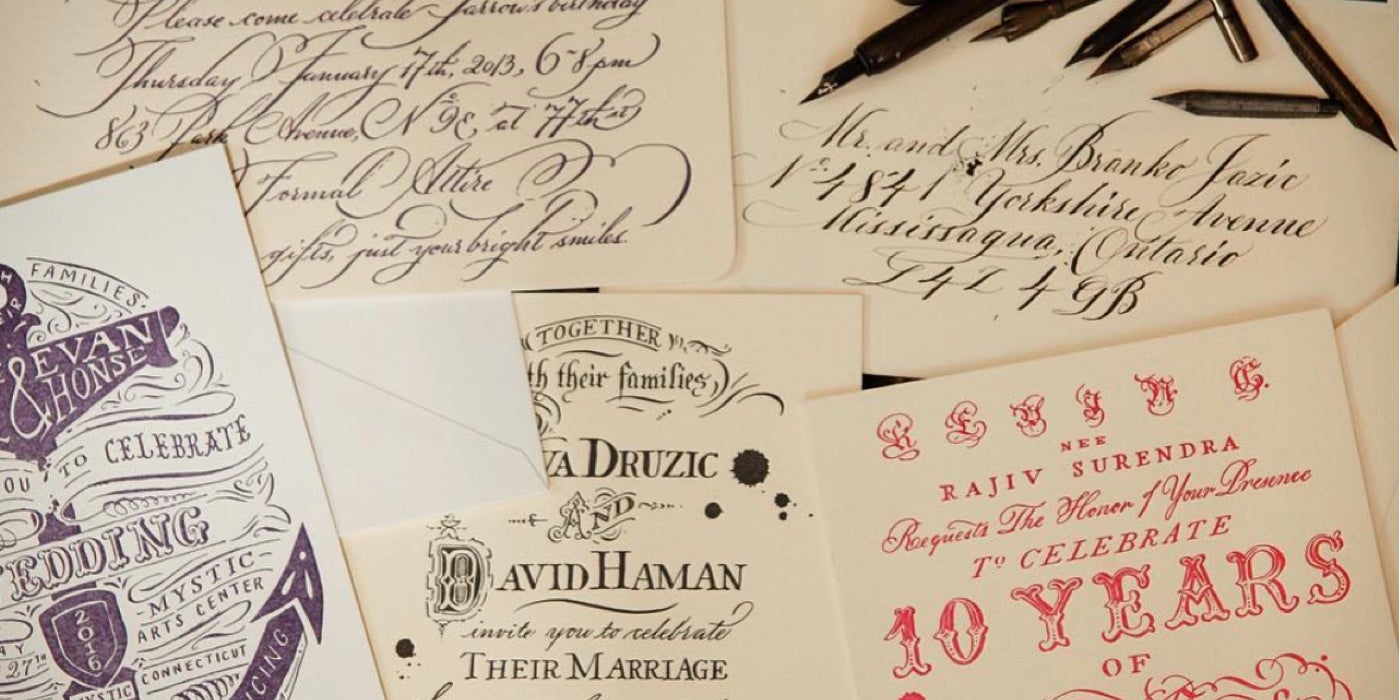 Please come celebrate Jarrow's birthday
Thursday January 17th, 2013, 6-8pm
863 Park Avenue, Nº 9E, at 77th st
Formal Attire
gifts, just your bright smiles
Mr. and Mrs. Branko Jazic
Nº 4841 Yorkshire Avenue
Mississagua, Ontario
L4Z 4GB
FAMILIES
EVAN
& HONSE
TO CELEBRATE
WEDDING
MYSTIC
ARTS CENTER
27TH
2016
MYSTIC CONNECTICUT
TOGETHER
their families,
DRUZIC
AND
DAVID HAMAN
invite you to celebrate
THEIR MARRIAGE
NEE
RAJIV SURENDRA
Requests The Honor of Your Presence
To CELEBRATE
10 YEARS
OF